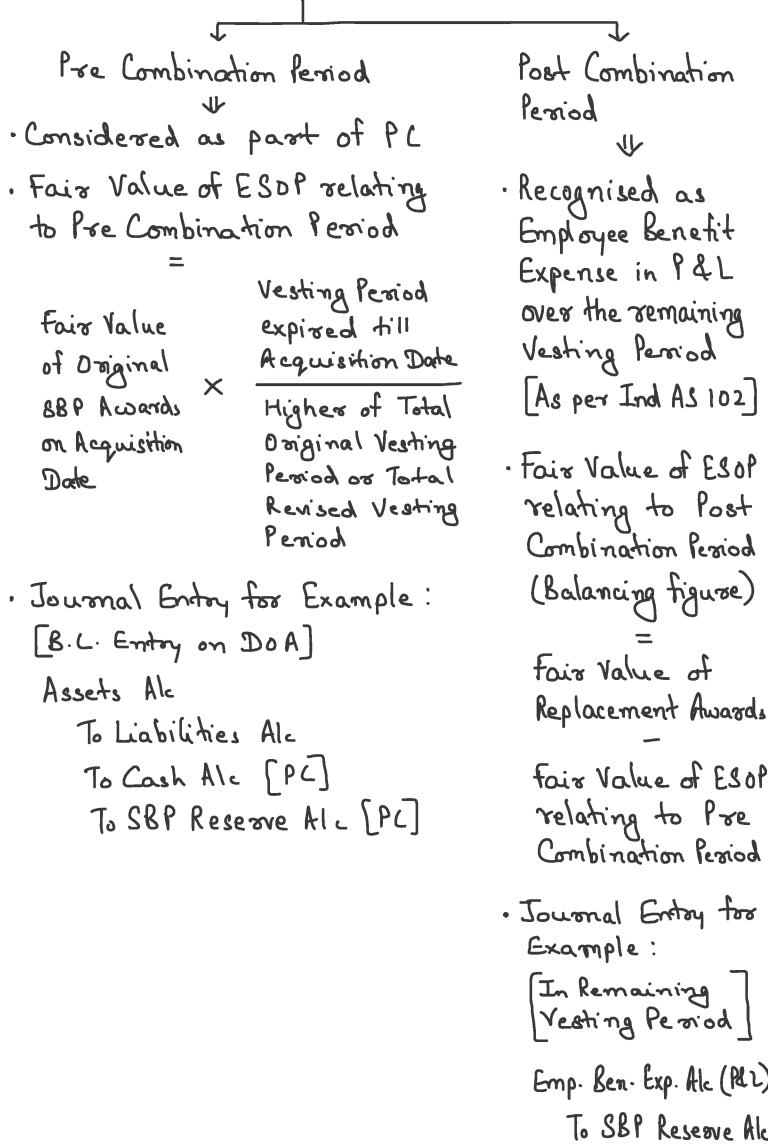 Pre Combination Period
⇓
• Considered as part of PC
• Fair Value of ESOP relating
to Pre Combination Period
=
Fair Value
of Original
SBP Awards
on Acquisition
Date
×
Vesting Period
expired till
Acquisition Date
Higher of Total
Original Vesting
Period or Total
Revised Vesting
Period
• Journal Entry for Example :
[B.C. Entry on DoA]
Assets A/c
To Liabilities A/c
To Cash A/c [PC]
To SBP Reserve A/c [PC]
Post Combination
Period
⇓
• Recognised as
Employee Benefit
Expense in P&L
over the remaining
Vesting Period
[As per Ind AS 102]
• Fair Value of ESOP
relating to Post
Combination Period
(Balancing figure)
=
Fair Value of
Replacement Awards
–
Fair Value of ESOP
relating to Pre
Combination Period
• Journal Entry for
Example :
[In Remaining
Vesting Period]
Emp. Ben. Exp. A/c (P&L)
To SBP Reserve A/c